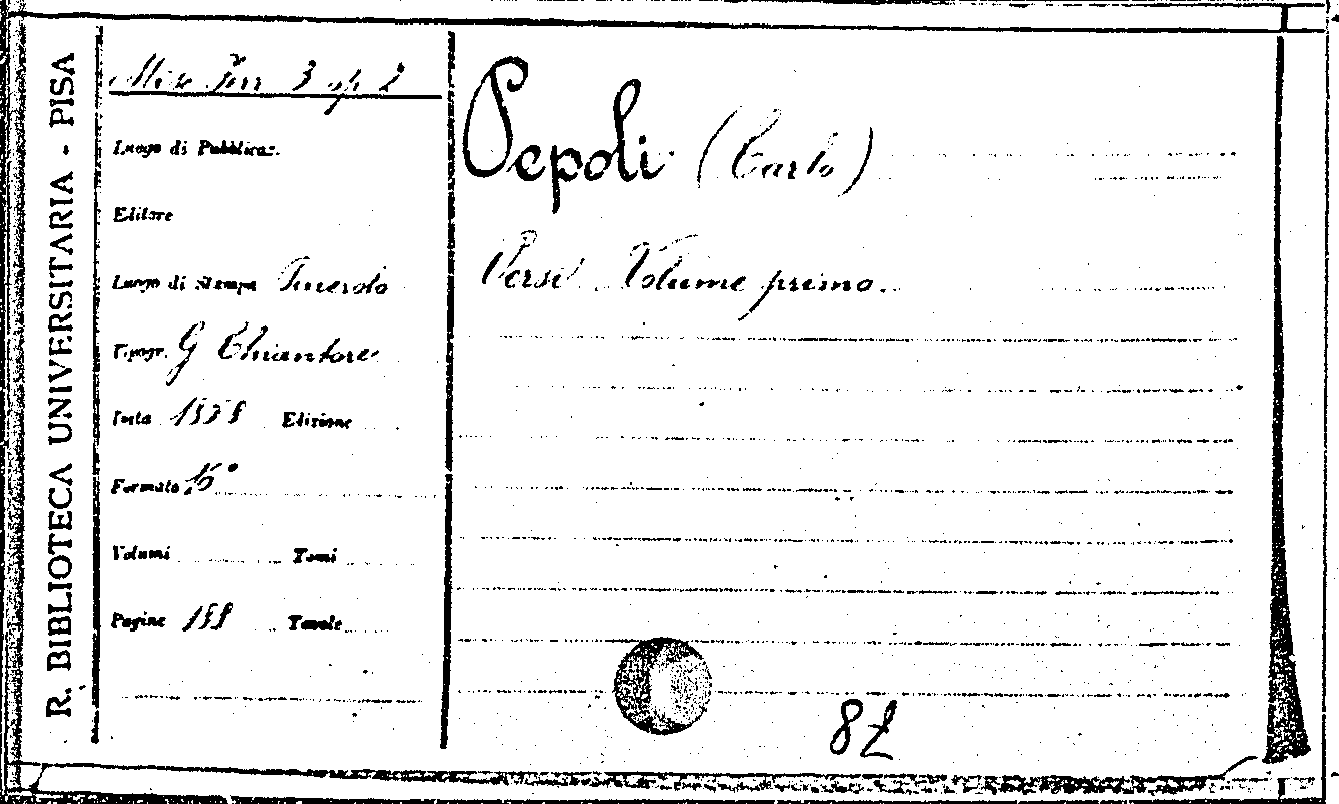 R. BIBLIOTECA UNIVERSITARIA - PISA
Misc 3 op 2
Luogo di Pubblicaz.
Editore
Luogo di Stampa Pinerolo
Tipogr. G Chiantore
Data Edizione
Formato 16°
Volumi Tomi
Pagine Tavole
Pepoli (Carlo)
Versi Volume primo.